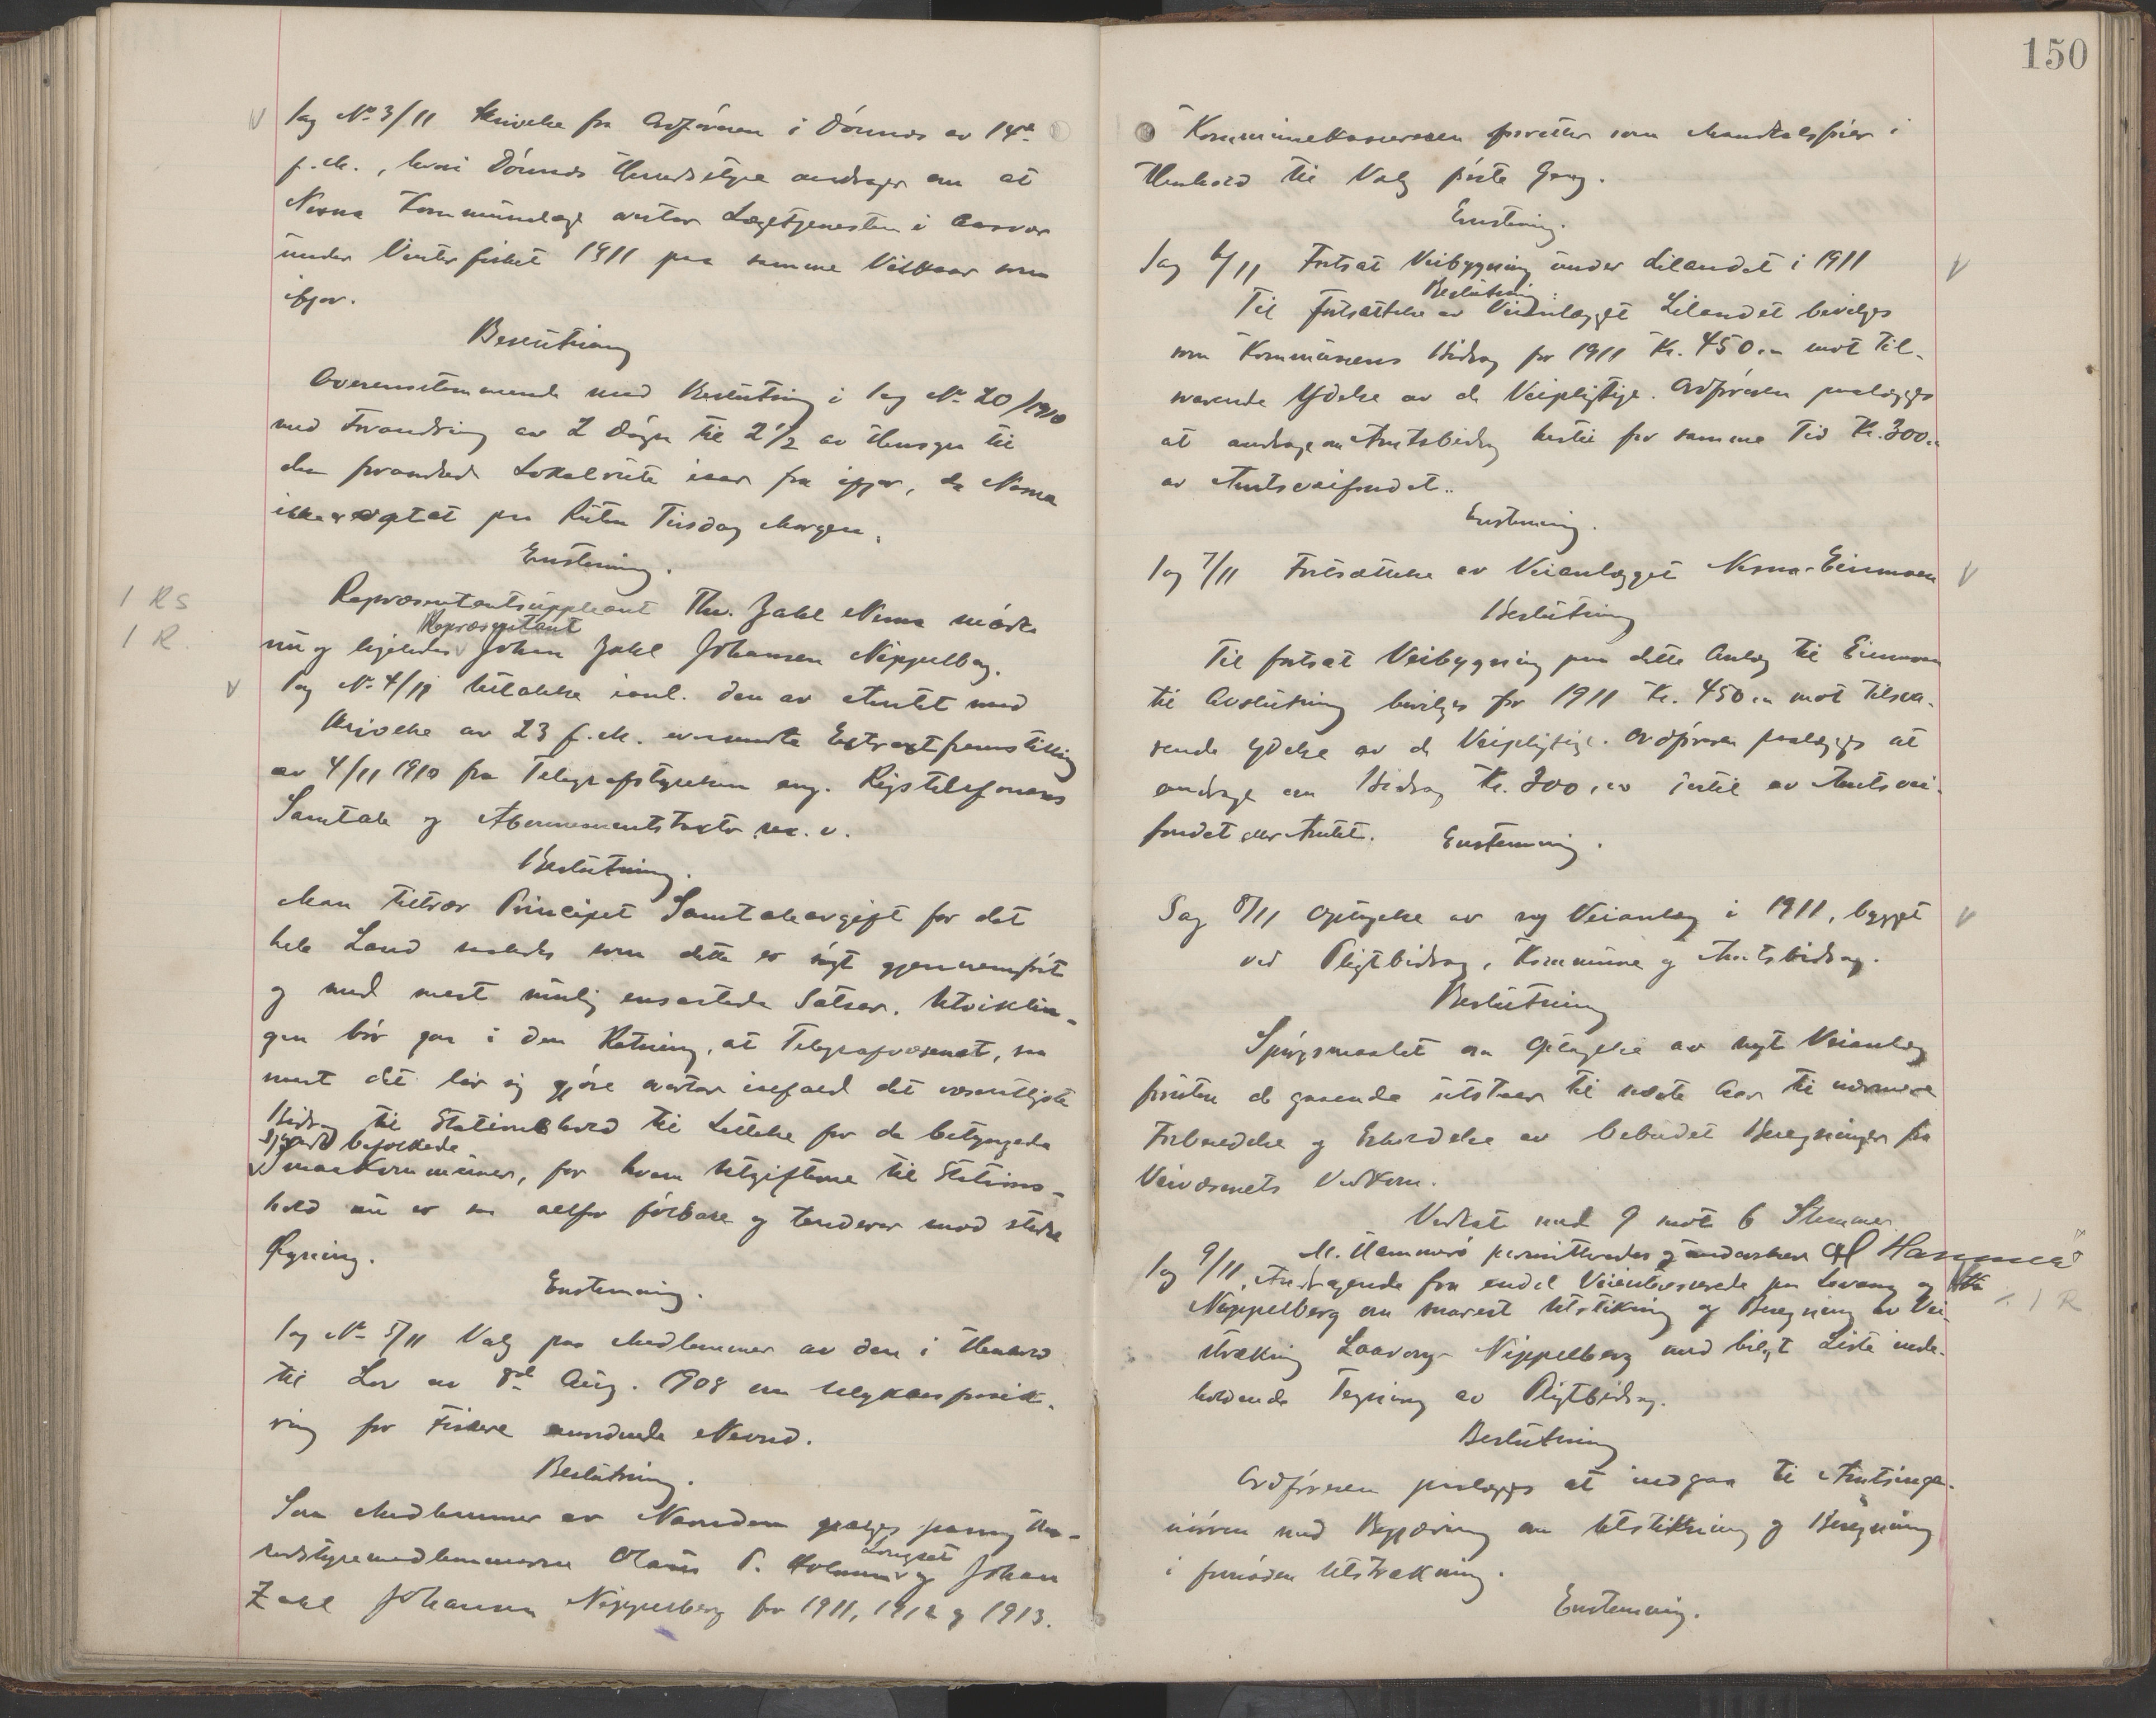 Sag No 3/11 Skrivelse fra Ordføreren i Dønnes av 14de
f. M., hvori Dønnes Herredsstyre andrager om at
Nesna Kommunelæge overtar Lægetjenesten i Aasvær
under Vinterfisket 1911 paa samme Vilkaar som
ifjor.
Beslutning
Overensstemmende med Beslutning i Sag No 20/1910
med Forandring av 2 Døgn til 2 1/2 av Hensyn til
den forandrede Lokalrute iaar fra ifjor, da Nesna
ikke er optat paa Ruten Tirsdag Morgen.
Enstemmig.
1 RS
Repræsentantsuppleant Thv. Zahl Nesna mødte
1 R.
Repræsentant
nu og ligeledes Johan Zahl Johansen Nippelberg.
Sag No 4/11 Uttalelse isml. den av Amtet med
Skrivelse av 23 f. M. Extraktfremstilling
av 4/11 1910 fra Telegrafstyrelsen ang. Rigstelefonens
Samtale og Abonnementstakster m. v.
Beslutning.
Man tiltrær Principet Samtaleavgift for det
hele Land saaledes som dette er søgt gjennemført
og med mest mulig ensartede Satser. Utviklin-
gen bør gaa i den Retning, at Telegrafvæsenet, saa
snart det lar sig gjøre overtar ialfald det væsentligste
Bidrag til Stationshold til Lettelse for de betyngede
spredt befolkede
Smaakommuner, for hvem Utgifterne til Stations-
hold nu er saa altfor følbare og tenderer mod sterk
Øgning.
Enstemmig.
Sag No 5/11 Valg paa Medlemmer av den i Henhold
til Lov av 8de Aug. 1908 om Ulykkesforsik-
ring for Fiskere anordnede Nevnd.
Beslutning.
Som Medlemmer av Nævnden vælges Her-
redsstyremedlemmerne Olaus P. Holmen Longset og Johan
Zahl Johansen Nippelberg for 1911, 1912 og 1913.
150
Kommunekassereren forretter som Mandtalsfører i
Henhold til Valg første Gang.
Enstemmig.
Sag 6/11 Fortsat Veibygning under Lilandet i 1911
Beslutning:
Til Fortsættelse av Veianlægget Lilandet bevilges
som Kommunens Bidrag for 1911 Kr. 450,00 mot til-
svarende Ydelse av de Veipligtige. Ordføreren paalægges
at andrage om Amtsbidrag hertil for samme Tid Kr. 300,00
av Amtsveifondet.
Enstemmig.
Sag 7/11 Fortsættelse av Veianlægget Nesna-Einmoen
Beslutning
Til fortsat Veibygning paa dette Anlæg til Einmoen
til Avslutning bevilges for 1911 Kr. 450,00 mot tilsva-
rende Ydelse av de Veipligtige. Ordføreren paalægges at
andrage om Bidrag Kr. 300,00 hertil av Amtsvei-
fondet eller Amtet. Enstemmig.
Sag 8/11 Optagelse av ny Veianlæg i 1911, bygget
ved Pligtbidrag, Kommune og Amtsbidrag.
Beslutning
Spørgsmaalet om Optagelse av nyt Veianlæg
foruten de gaaende utstaar til næste Aar til nærmere
Forberedelse og Erholdelse av bebudet Beregninger fra
Veivæsenets Vedkom.
Vedtat med 9 mot 6 Stemmer
M. Hammerø permitteredes og underskrev M Hammerø
Sag 9/11 Andragende fra endel Veiinteresserede paa Levang og
÷ 1 R
Nippelberg om snarest Utstikning og Beregning av Vei-
strækning Laavong - Nippelberg med bilagt Liste inde-
holdende Tegning av Pligtbidrag.
Beslutning
Ordføreren paalægges at indgaa til Amtsinge-
niøren med Begjæring om Utstikning og Beregning
i fornøden Utstrækning.
Enstemmig.